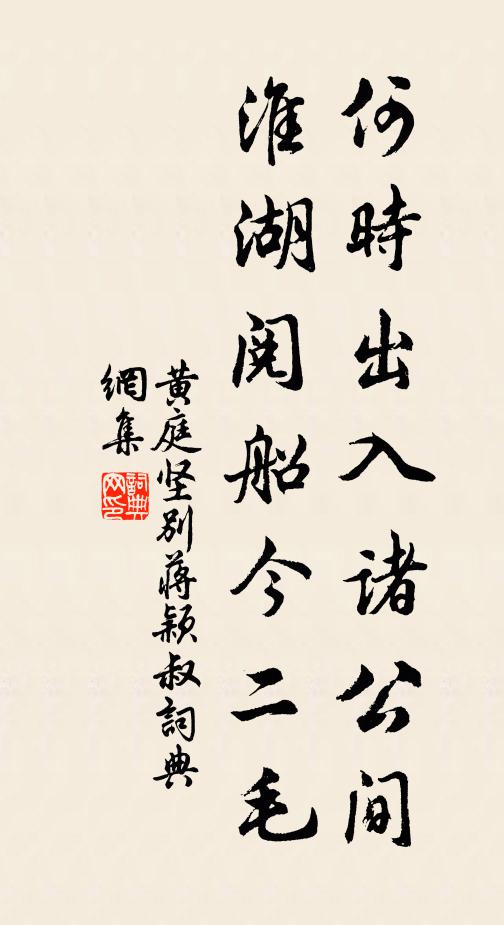 何時出入諸公間
淮湖閱船今二毛
黃庭坚別蔣穎叔詞典
網集
詞典
网印